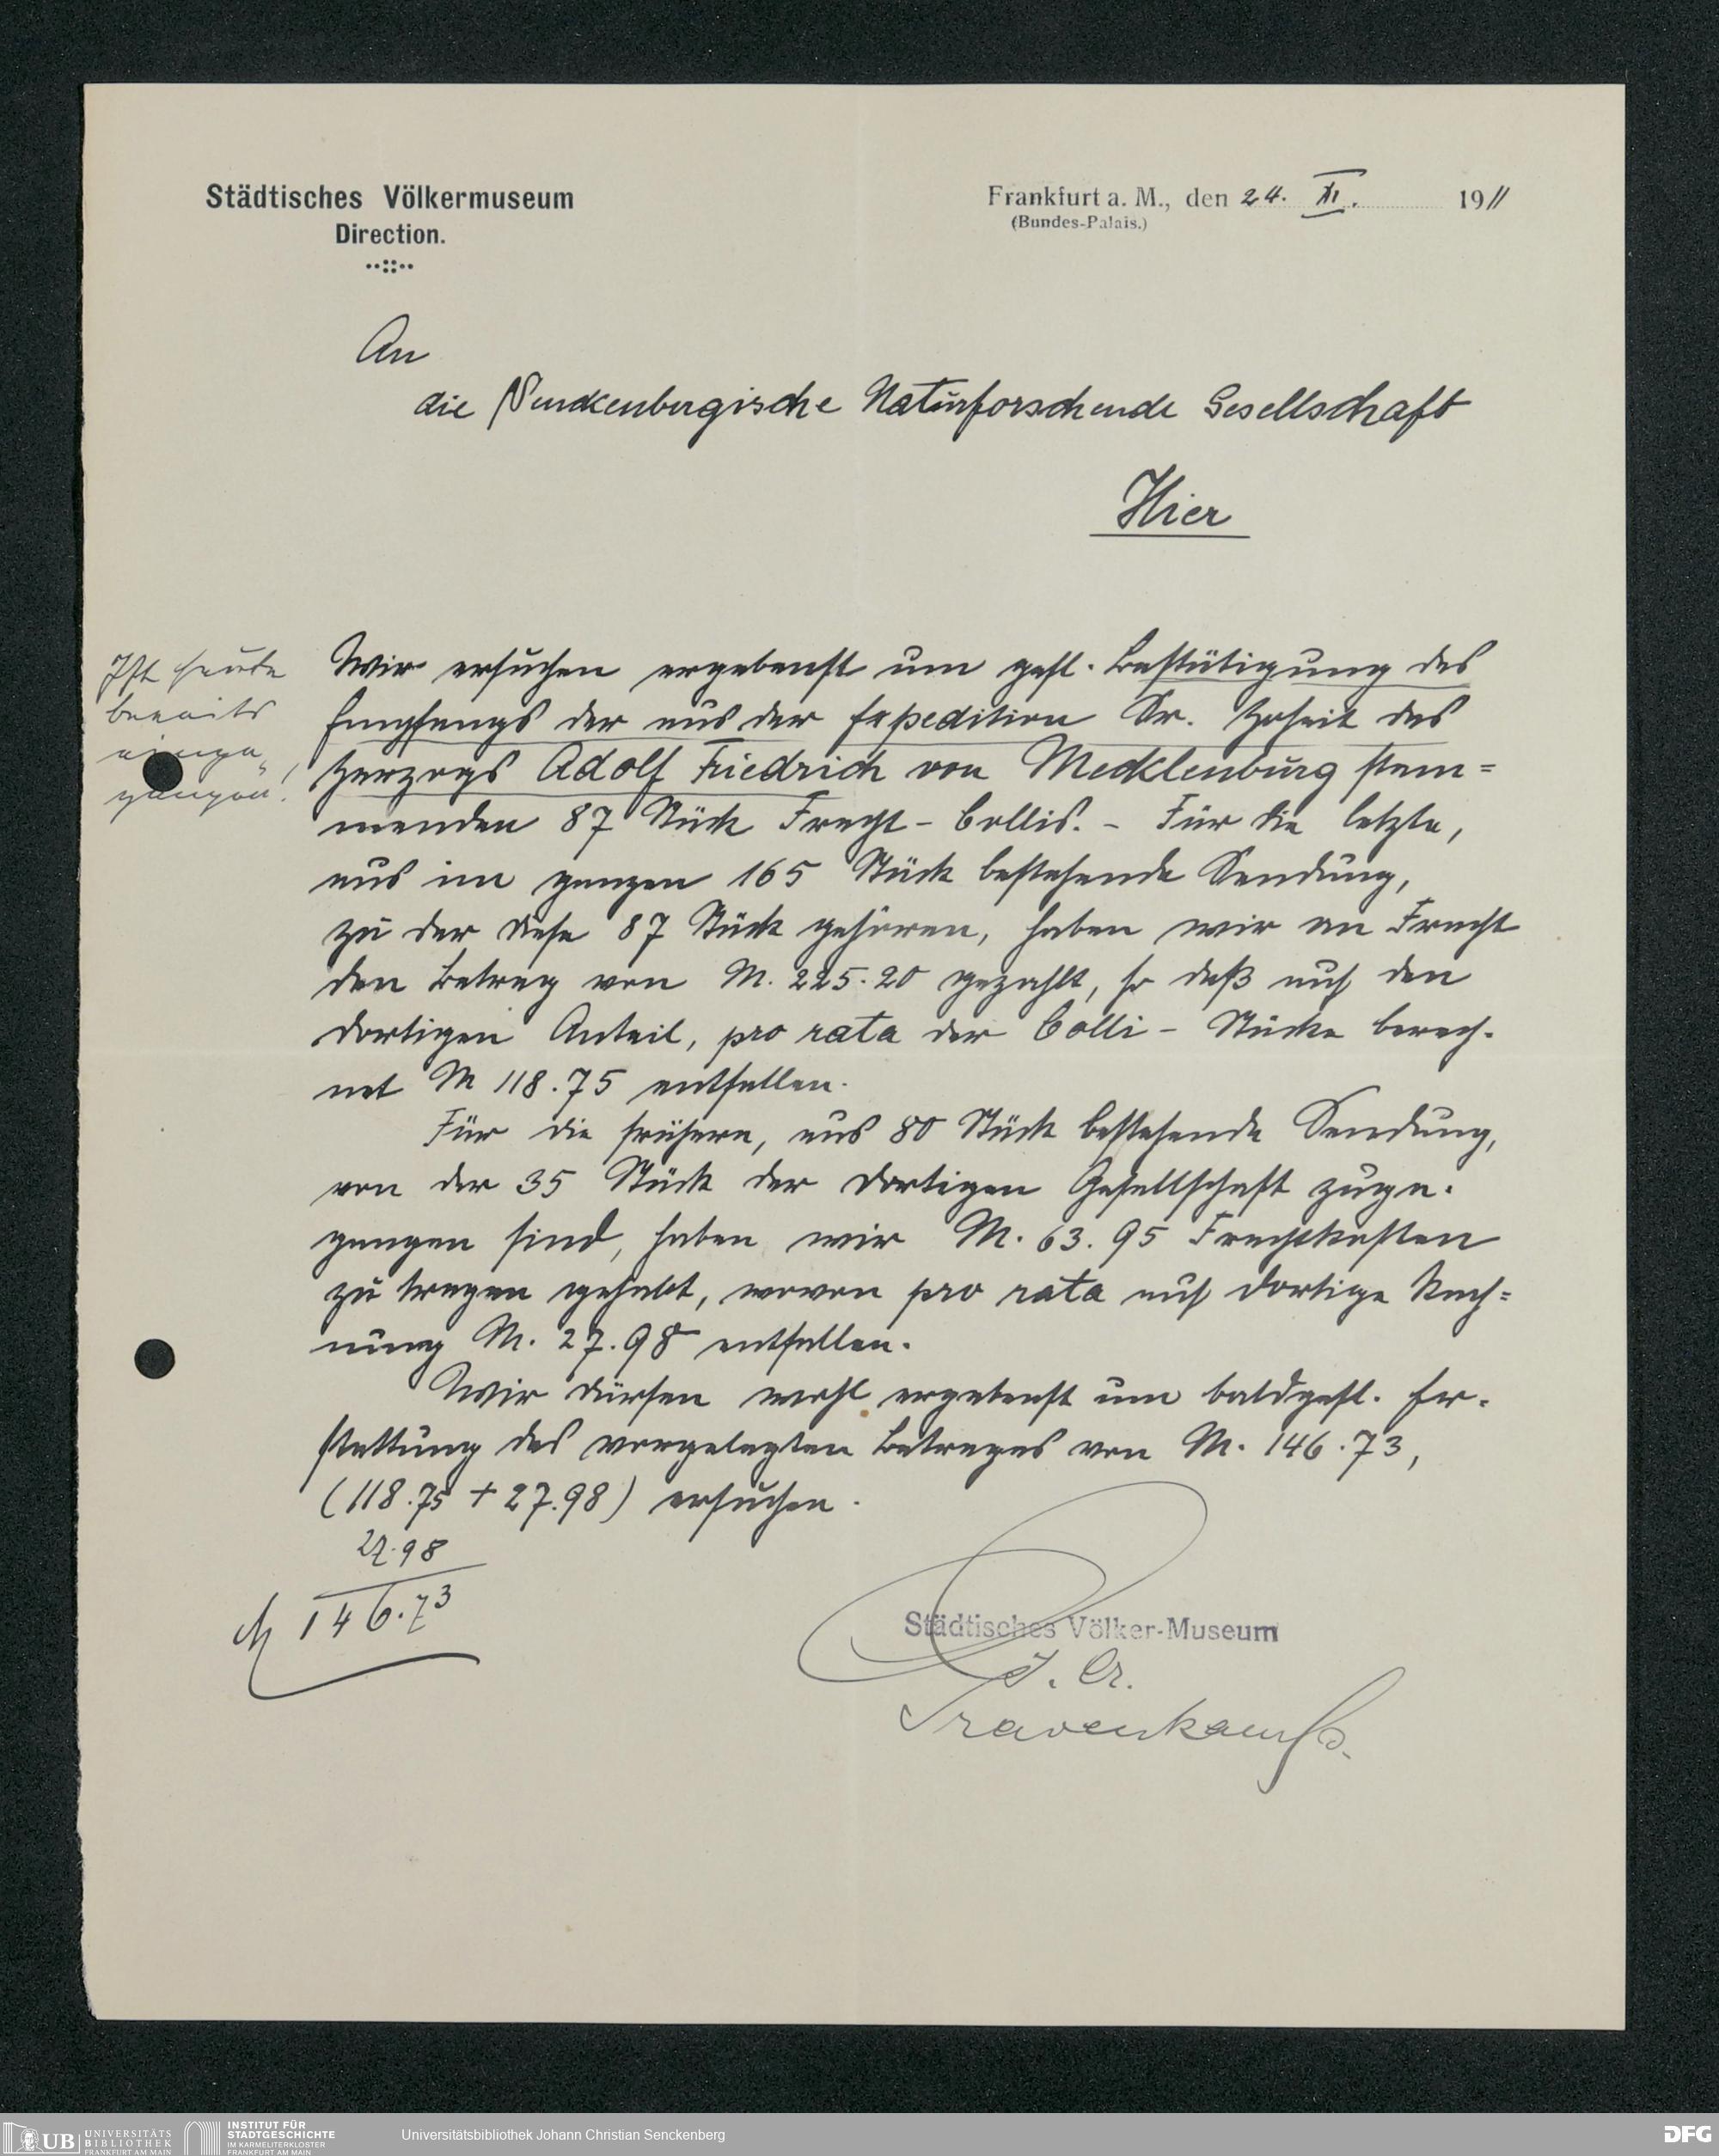 Städtisches Völkermuseum
Direction.
Frankfurt a. M., den 24. XI. 1911
(Bundes-Palais.)
An
die Senckenbergische Naturforschende Gesellschaft
Hier
Ist heute
bereits
einge„
gangen!
Wir ersuchen ergebenst um gefl. Bestätigung des
Empfangs der aus der Expedition Sr. Hoheit des
Herzogs Adolf Friedrich von Mecklenburg stam=
menden 87 Stück Fracht-Collis. - Für die letzte,
aus im ganzen 165 Stück bestehende Sendung,
zu der diese 87 Stück gehören, haben wir an Fracht
den Betrag von M. 225.20 gezahlt, so daß auf den
dortigen Anteil, pro rata der Colli-Stücke berech-
net M 118.75 entfallen.
Für die frühere, aus 80 Stück bestehende Sendung,
von der 35 Stück der dortigen Gesellschaft zuge-
gangen sind, haben wir M. 63.95 Frachtkosten
zu tragen gehabt, wovon pro rata auf dortige Rech=
nung M. 27.98 entfallen.
Wir dürfen wohl ergebenst um baldgefl. Er-
stattung des vorgelegten Betrages von M. 146.73,
(118.75 + 27.98) ersuchen.
27.98
M 146.73
Städtisches Völker-Museum